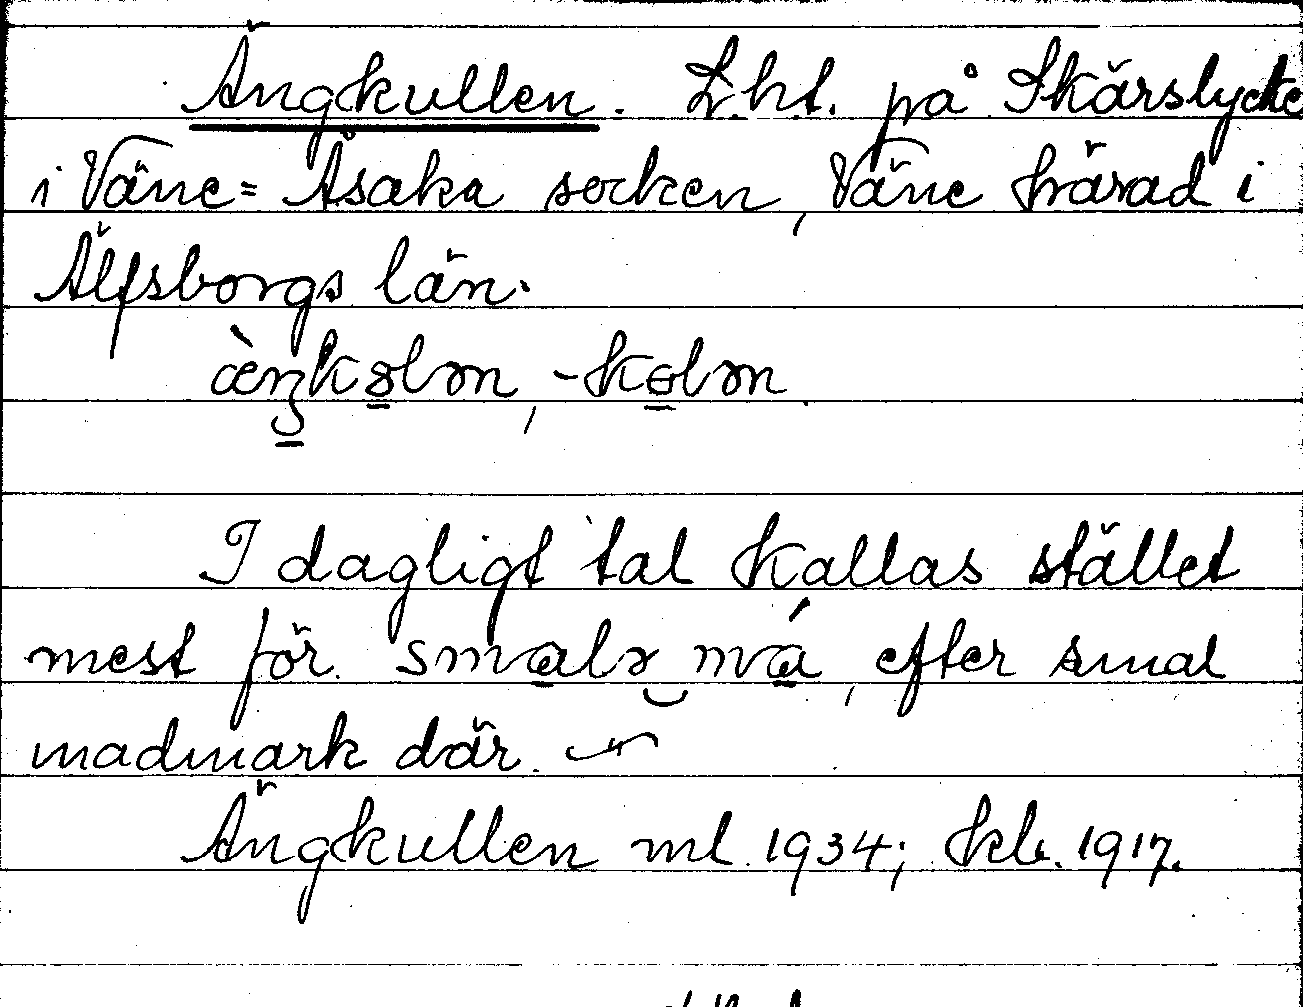 Ängkullen. Lht. på Skärslycke
i Väne-Åsaka socken, Väne härad i
Älfsborgs län.
æ̀ŋkɵlən, -kɵlən.
I dagligt tal kallas stället
mest för smalə má, efter smal
madmark där.
Ängkullen ml. 1934; kb. 1917.